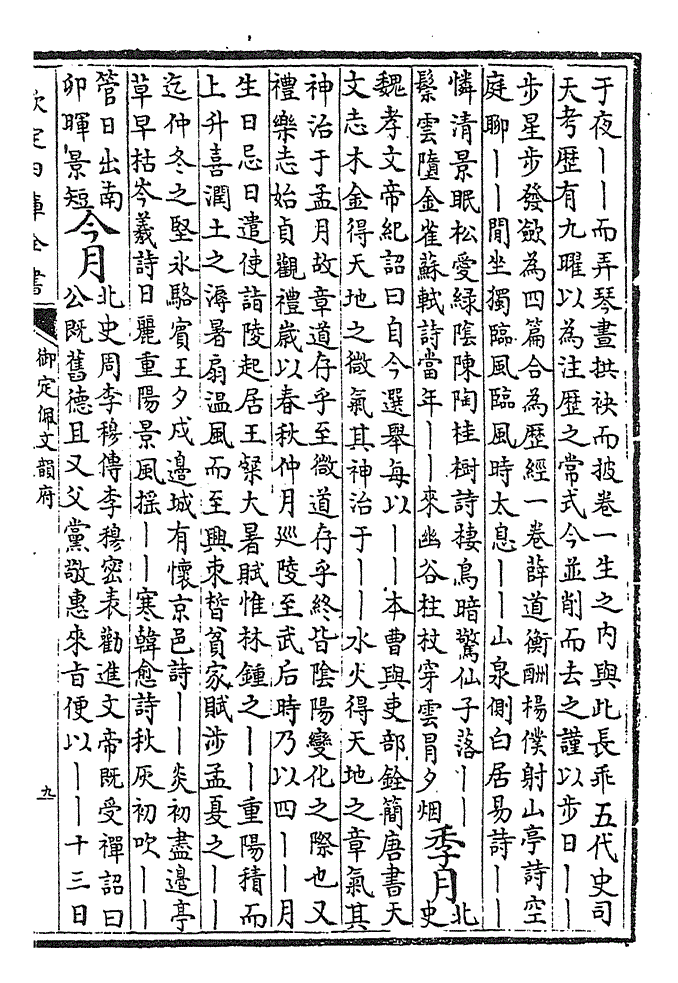 于夜｜｜而弄琴晝拱袂而披卷一生之内與此長乖五代史司
天考歴有九曜以為注歴之常式今並削而去之謹以步日｜｜
步星步發歛為四篇合為歴經一卷薛道衡酬楊僕射山亭詩空
庭聊｜｜閒坐獨臨風臨風時太息｜｜山泉側白居易詩｜｜
憐清景眠松愛綠隂陳陶桂樹詩棲鳥暗驚仙子落｜｜
鬃雲隨金雀蘇軾詩當年｜｜來幽谷柱杖穿雲冒夕烟
季月
北
史
魏孝文帝紀詔曰自今選舉每以｜｜本曹與吏部銓簡唐書天
文志木金得天地之微氣其神治于｜｜水火得天地之章氣其
神治于孟月故章道存乎至微道存乎終皆隂陽變化之際也又
禮樂志始貞觀禮歲以春秋仲月廵陵至武后時乃以四｜｜月
生日忌日遣使詣陵起居王粲大暑賦惟林鍾之｜｜重陽積而
上升喜潤土之溽暑扇温風而至興束晳貧家賦涉孟夏之｜｜
迄仲冬之堅氷駱賓王夕戍邊城有懷京邑詩｜｜炎初盡邊亭
草早枯岑羲詩日麗重陽景風揺｜｜寒韓愈詩秋灰初吹｜｜
管日出南
卯暉景短
今月
北史周李穆傳李穆密表勸進文帝既受禪詔曰
公既舊德且又父黨敬惠來旨便以｜｜十三日
欽定四庫全書
御定佩文韻府
九